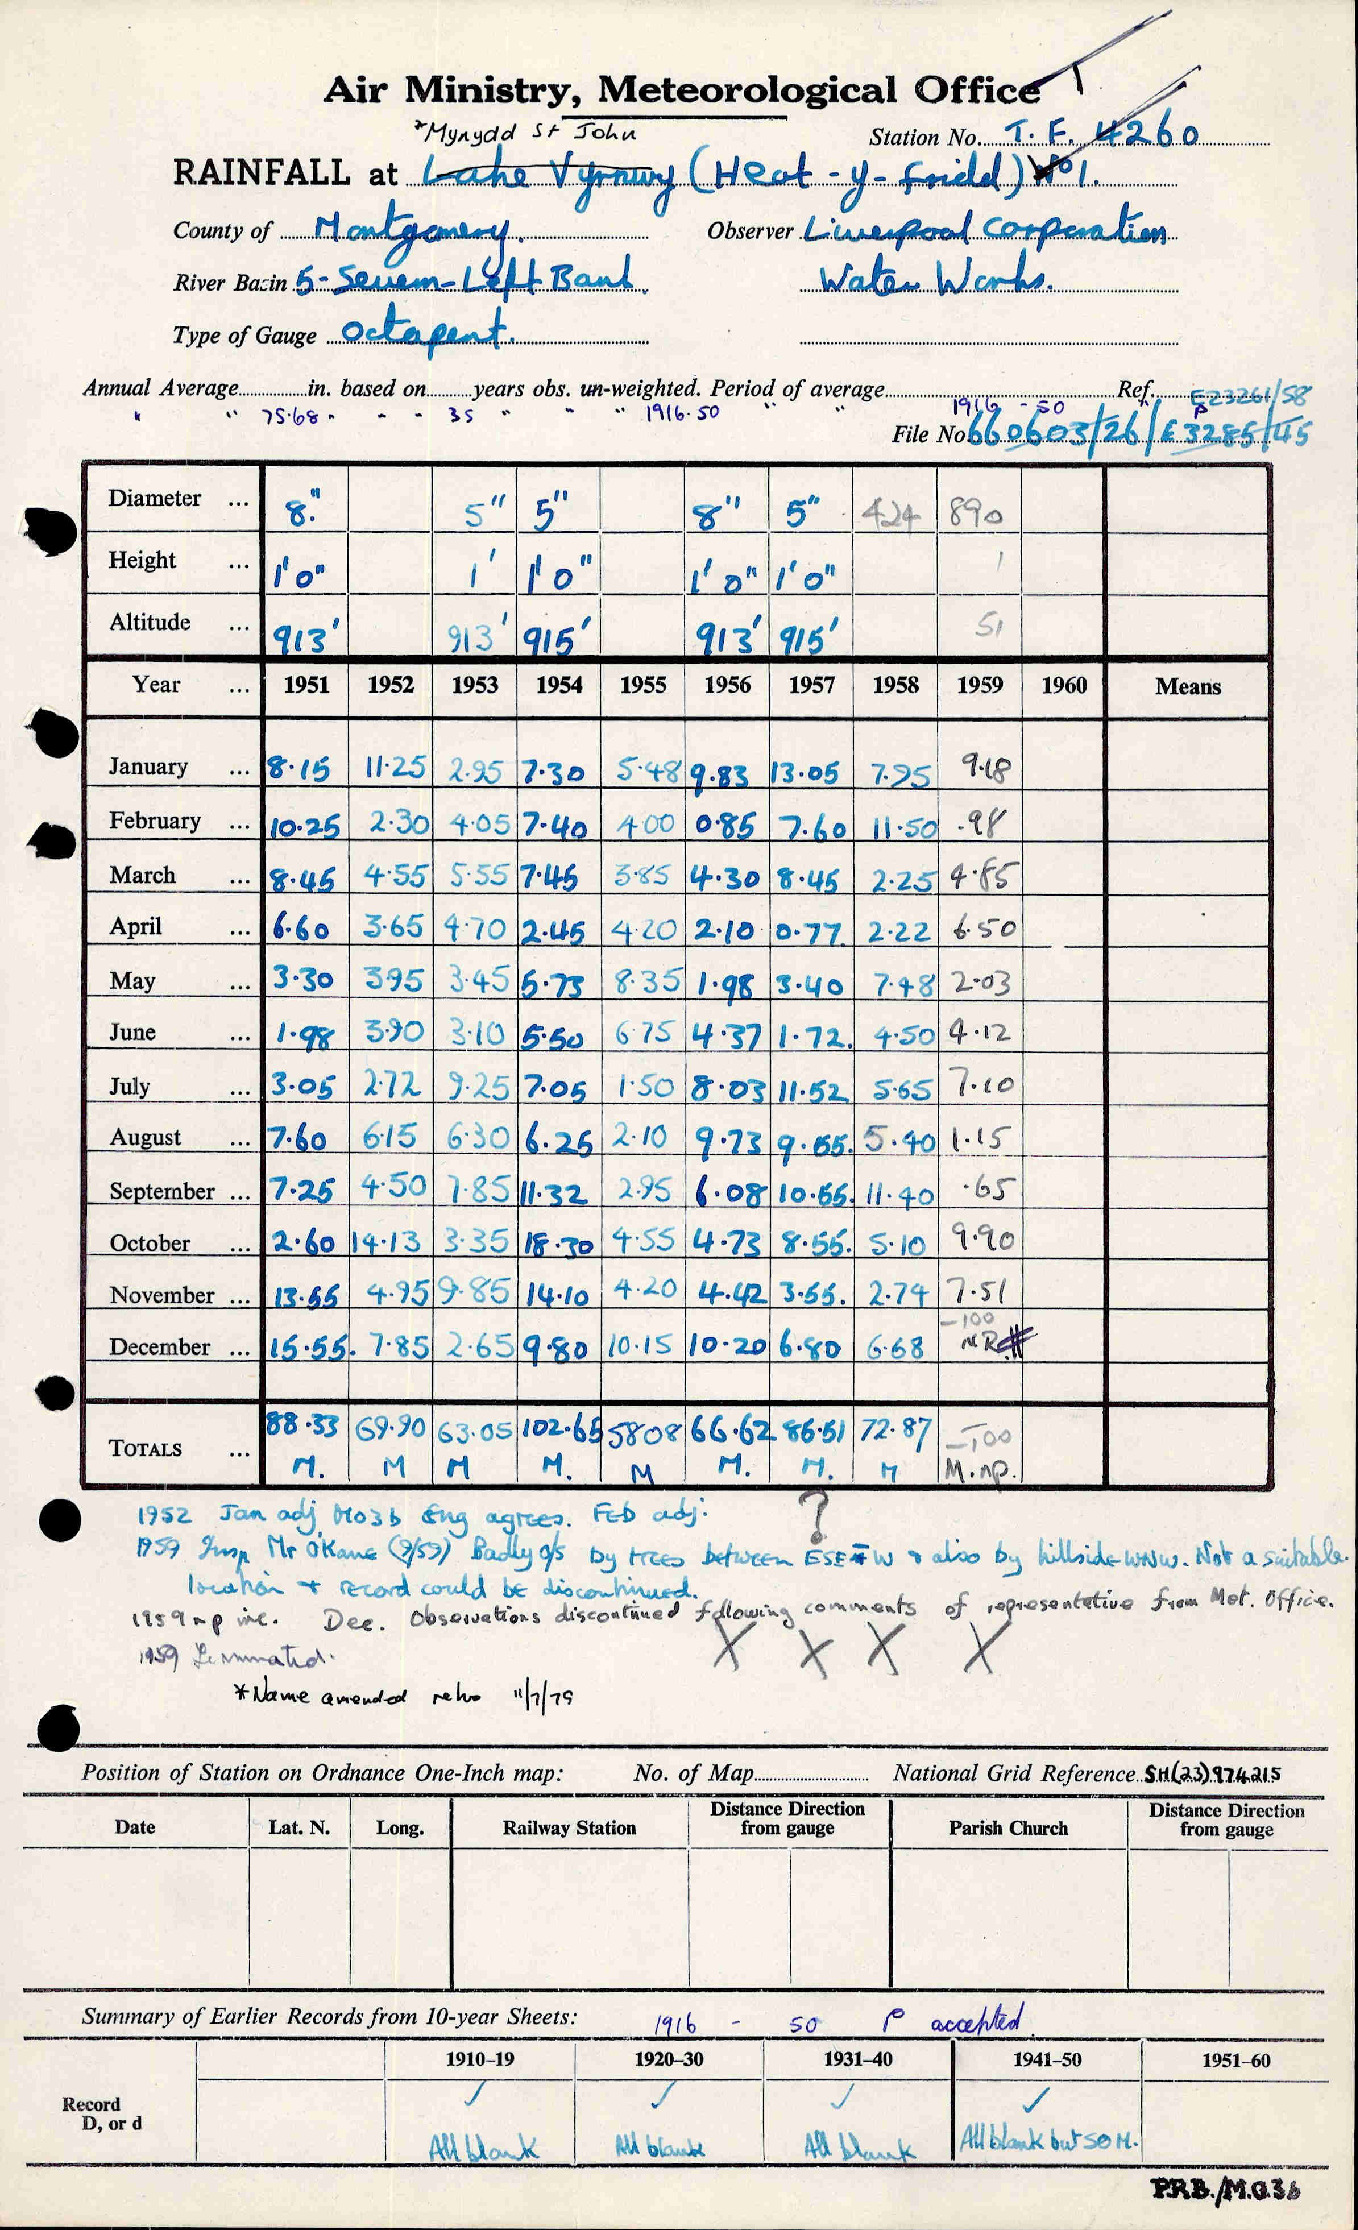 Air Ministry, Meteorological Office
*Mynydd St John
Station No. T. F. 4260
RAINFALL at Lake Vyrnwy (Heot-y-fridd) No 1.
County of Montgomery. Observer Liverpool Corporation
River Basin 5-Severn-Left Bank. Water Works.
Type of Gauge Octapent.
Annual Average in. based on years obs. un-weighted. Period of average Ref. E23261/58
" " 75.68 " - - - 35 " " " 1916-50 " " 1916 - 50 "
File No 660603/26/E3285/45
Diameter ... 8." 5" 5" 8" 5" 424 890
Height ... 1'0" 1' 1'0" 1'0" 1'0" 1
Altitude ... 913' 913' 915' 913' 915' 51
Year ... 1951 1952 1953 1954 1955 1956 1957 1958 1959 1960 Means
January ... 8.15 11.25 2.95 7.30 5.48 9.83 13.05 7.95 9.18
February ... 10.25 2.30 4.05 7.40 4.00 0.85 7.60 11.50 .98
March ... 8.45 4.55 5.55 7.45 3.85 4.30 8.45 2.25 4.85
April ... 6.60 3.65 4.70 2.45 4.20 2.10 0.77 2.22 6.50
May ... 3.30 395 3.45 5.73 8.35 1.98 3.40 7.48 2.03
June ... 1.98 3.90 3.10 5.50 6.75 4.37 1.72. 4.50 4.12
July ... 3.05 2.72 9.25 7.05 1.50 8.03 11.52 5.65 7.10
August ... 7.60 6.15 6.30 6.25 2.10 9.73 9.55. 5.40 1.15
September ... 7.25 4.50 7.85 11.32 2.95 6.08 10.55. 11.40 .65
October ... 2.60 14.13 3.35 18.30 4.55 4.73 8.55. 5.10 9.90
November ... 13.55 4.95 9.85 14.10 4.20 4.42 3.55. 2.74 7.51
-100
December ... 15.55. 7.85 2.65 9.80 10.15 10.20 6.80 6.68 NR#
TOTALS ... 88.33 69.90 63.05 102.65 5808 66.62 86.51 72.87 -100
M. M M M. M M. M. M M.np.
1952 Jan adj Mo3b Eng agrees. FEB adj. ?
1959 Insp Mr O'Kane (9/59) Badly o/s by trees between ESE & W & also by hillside WNW. Not a suitable
location & record could be discontinued.
1959 n p inc. Dec. Observations discontinued following comments of representative from Met. Office.
1959 Terminated. X X X X
*Name amended 11/7/79
Position of Station on Ordnance One-Inch map: No. of Map National Grid Reference SH(23)974215
Date Lat. N. Long. Railway Station Distance Direction from gauge Parish Church Distance Direction from gauge
Summary of Earlier Records from 10-year Sheets: 1916 - 50 accepted.
1910–19 1920–30 1931–40 1941–50 1951–60
Record
D, or d
✓ ✓ ✓ ✓
All blank All blank All blank All blank but 50 M.
P.R.B./M.O.3b